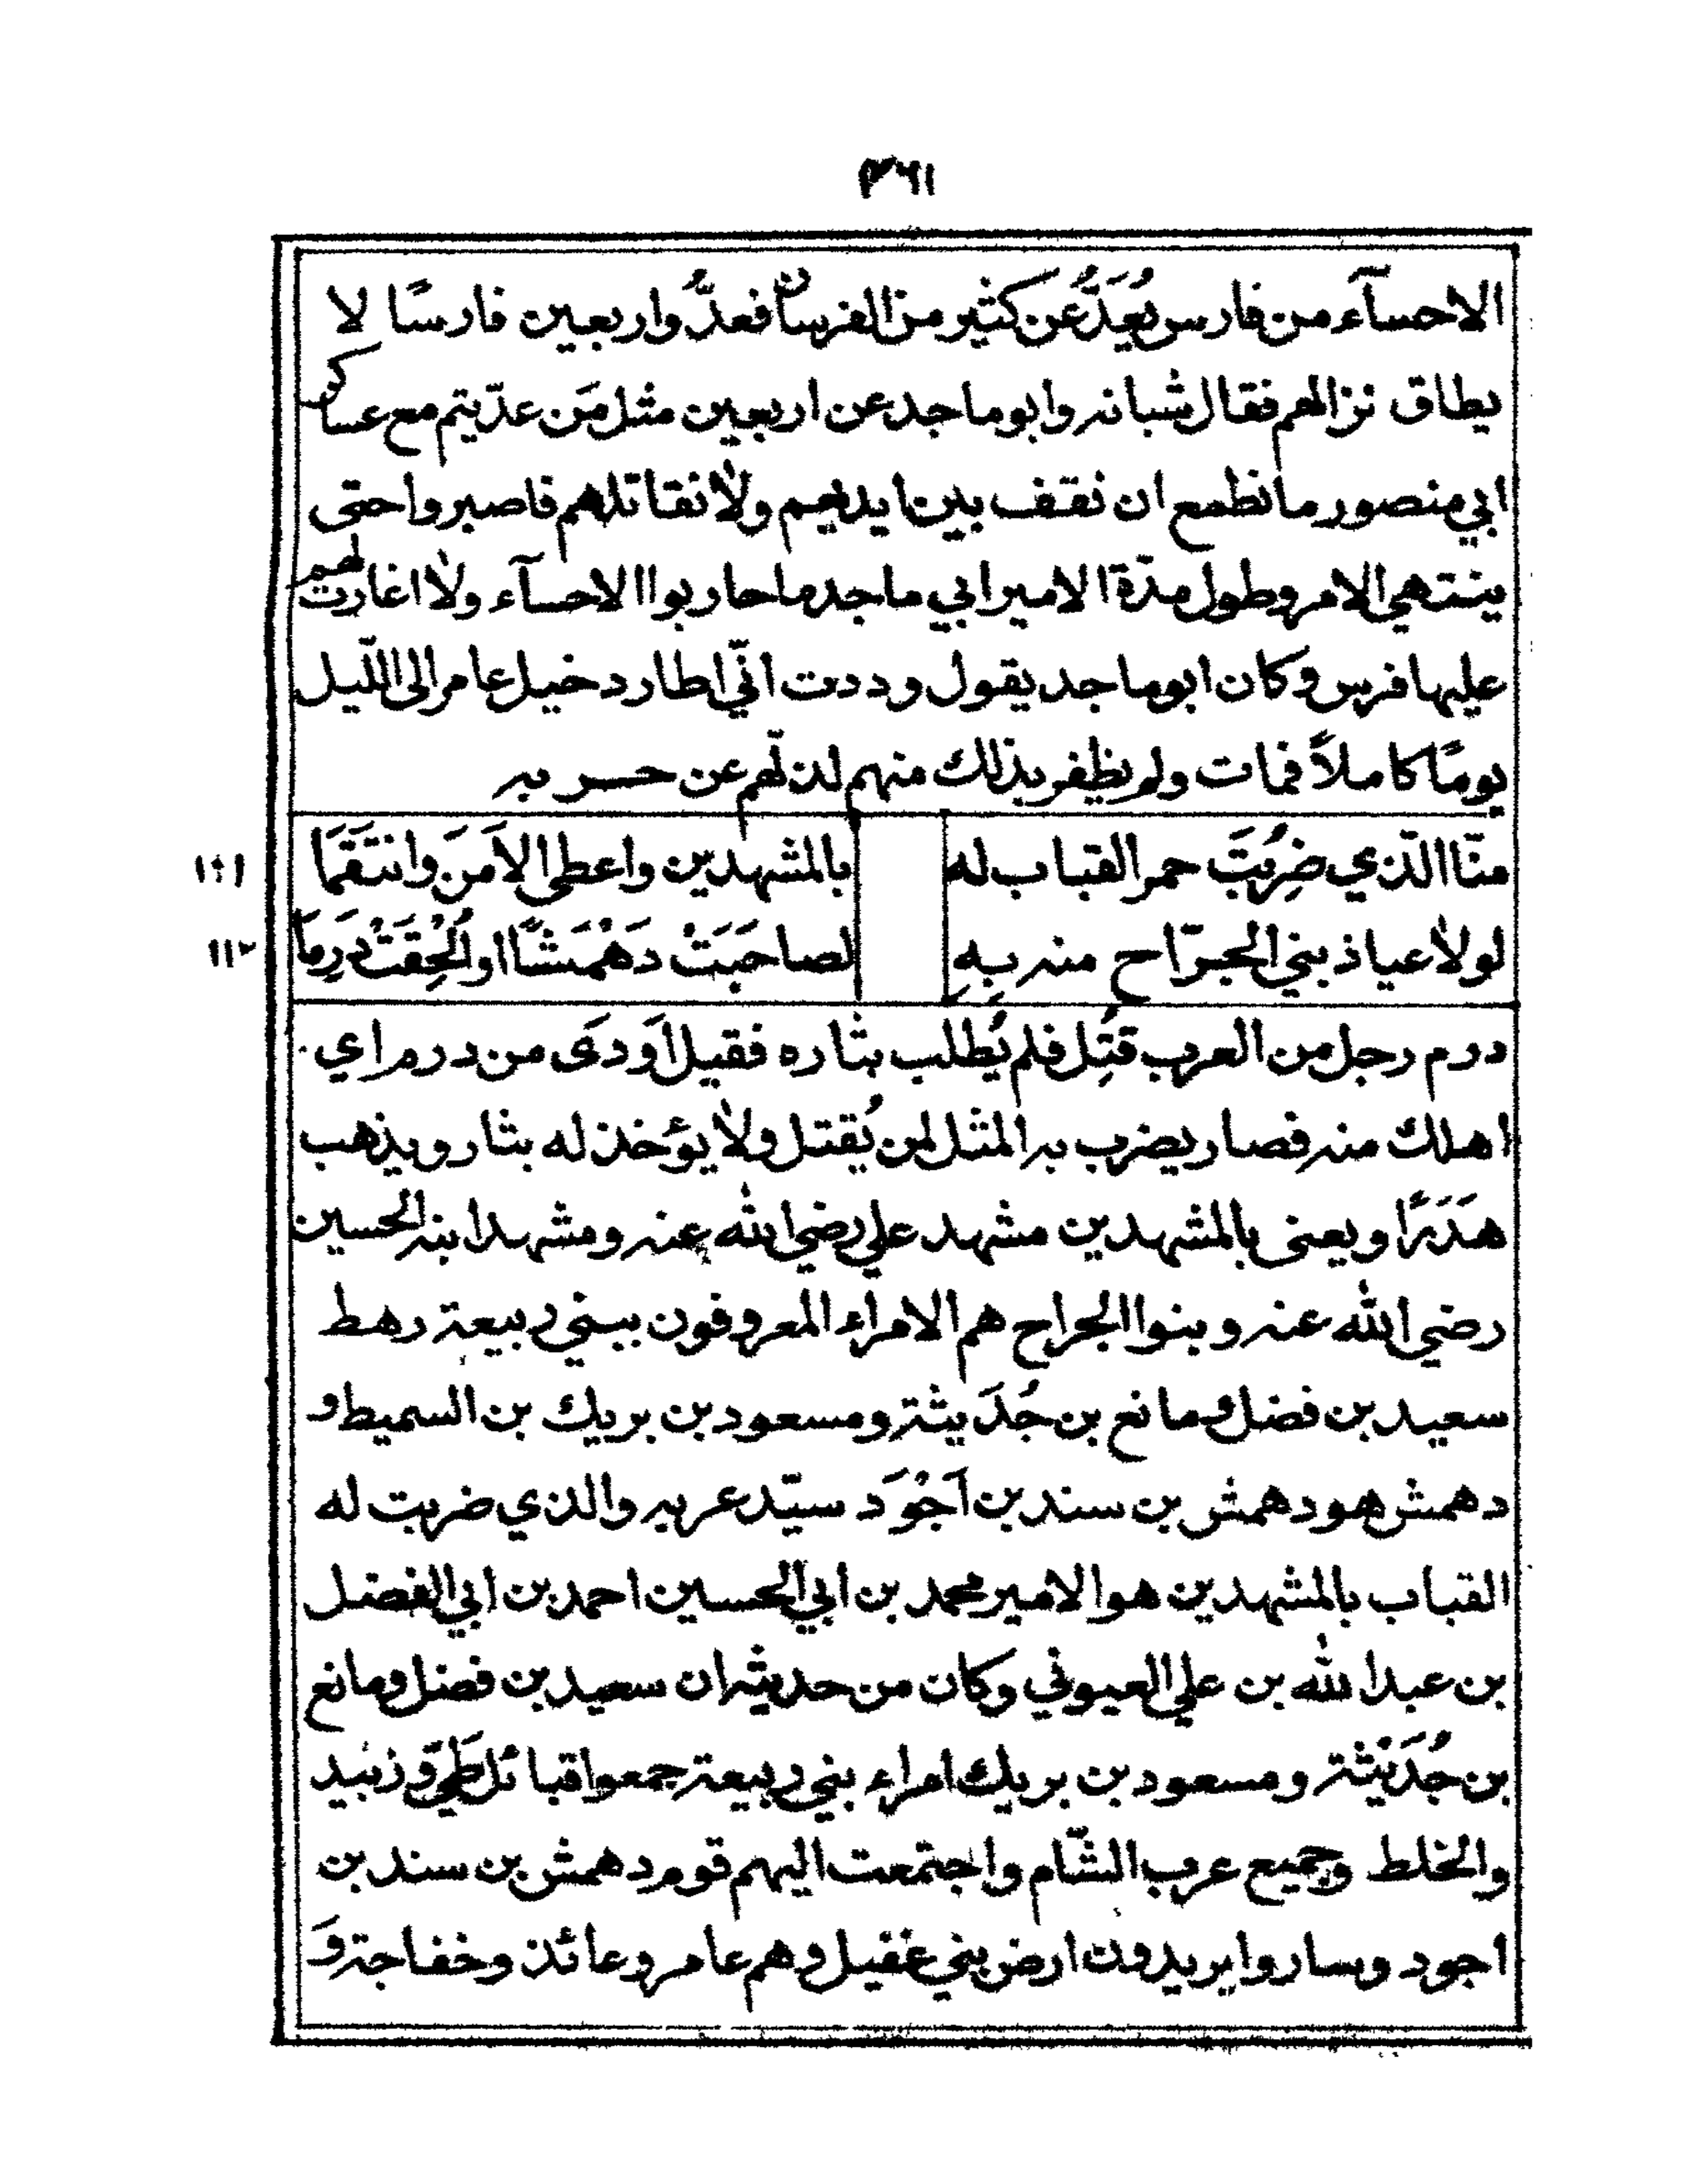 ٤٦١
الاحسآء من فارس يُعَدُّ عن كثير من الفرسان فعدُّوا ربعين فارسًا لا
يطاق نزالهم فقال شبانه وابو ماجد عن اربعين مثل مَن عدّيتم مع عساكر
ابي منصور ما نطمع ان نقف بين ايديهم ولا نقاتلهم فاصبروا حتى
ينتهي الامر وطول مدّة الامير ابي ماجد ما حاربوا الاحسآء ولا اغارت لهم
عليها فرس وكان ابو ماجد يقول وددت انّي اطارد خيل عامر الى اللّيل
يومًا كاملاً فمات ولم يظفر بذلك منهم لذلّهم عن حربه
منّا الّذي ضِرُبَتَ حمر القباب له بالمشهدين واعطى الاَمنَ وانتَقَمَا
لولا عياذ بني الجرّاح منه بِهِ لصاحَبَتْ دَهْمَشًا او اُلْحِقَتْ دَرِمَا ١١٢
درم رجل من العرب قتُِل فلم يُطلب بثاره فقيل اَودَى من درم اي
اهلك منه فصار يضرب به المثل لمن يُقتل ولا يؤخذ له بثار ويذهب
هَدَرًا ويعنى بالمشهدين مشهد علي رضي الله عنه ومشهد ابنه الحسين
رضي الله عنه وبنوا الجراح هم الامراء المعروفون ببني ربيعة رهط
سعيد بن فضل ومانع بن حُدَيثة ومسعود بن بريك بن السميط و
دهمش هو دهمش بن سند بن اَجْوَد سيّد عربه والذي ضربت له
القباب بالمشهدين هو الامير محمد بن ابي الحسين احمد بن ابي الفضل
بن عبد الله بن علي العيوني وكان من حديثه ان سعيد بن فضل ومانع
بن حُدَيْثة ومسعود بن بريك امراء بني ربيعة جمعوا قبائل طَيّ وزبيد
والخلط وجميع عرب الشّام واجتمعت اليهم قوم دهمش بن سند بن
اجود وساروا يريدون ارض بني عقيل وهم عامر وعائذ وخفاجة وَ